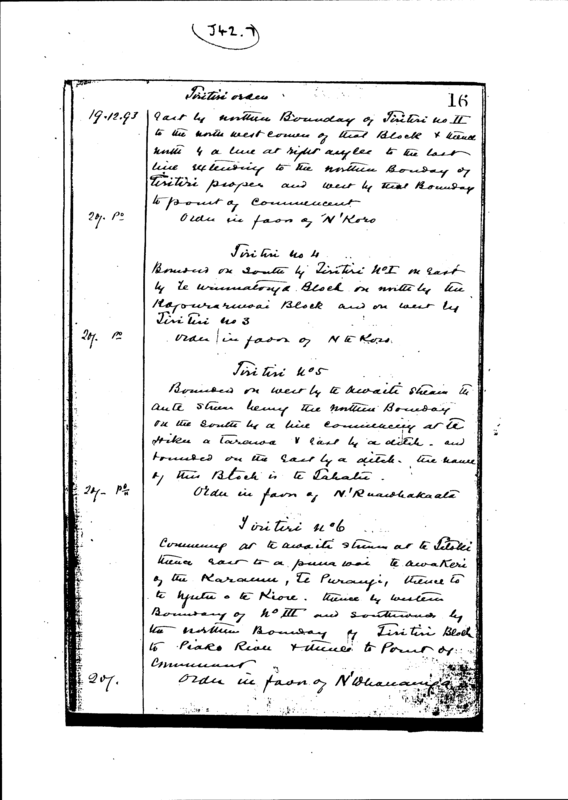 J42.7
Tiritiri orders
16
19.12.93 East by northern Boundary of Tiritiri no II
to the north west corner of that Block & thence
north by a line at right angles to the last
line extending to the northern Bonday of
Tiritiri proper and west by that Boundary
to point of Commencent
20/. Po Order in favor of N' Koro
Tiritiri no 4
Bounded on South by Tiritiri No I on East
by Te Block on north by the
Block and on west by
Tiritiri no 3
20/. Po order in favor of N te Koro.
Tiritiri No 5
Bounded on west by te Awaiti stream te
aute stream being the northern Bounday
on the South by a line commencing at te
Hiku a Tarawa & East by a ditch. and
bounded on the East by a ditch. the name
of this Block is te
20/- Po Order in favor of
Tiritiri No 6
Commencing at te Awaiti stream at te
thence East to a puna wai te Awakeri
of the Karamu, Te Purangi, thence to
te Ngutu o te Kiore. thence by western
Boundary of No III and southwards by
the northern Bounday of Tiritiri Block
to Piako River & thence to Point of
Commencement
20/. Order in favor of N' Whanaunga